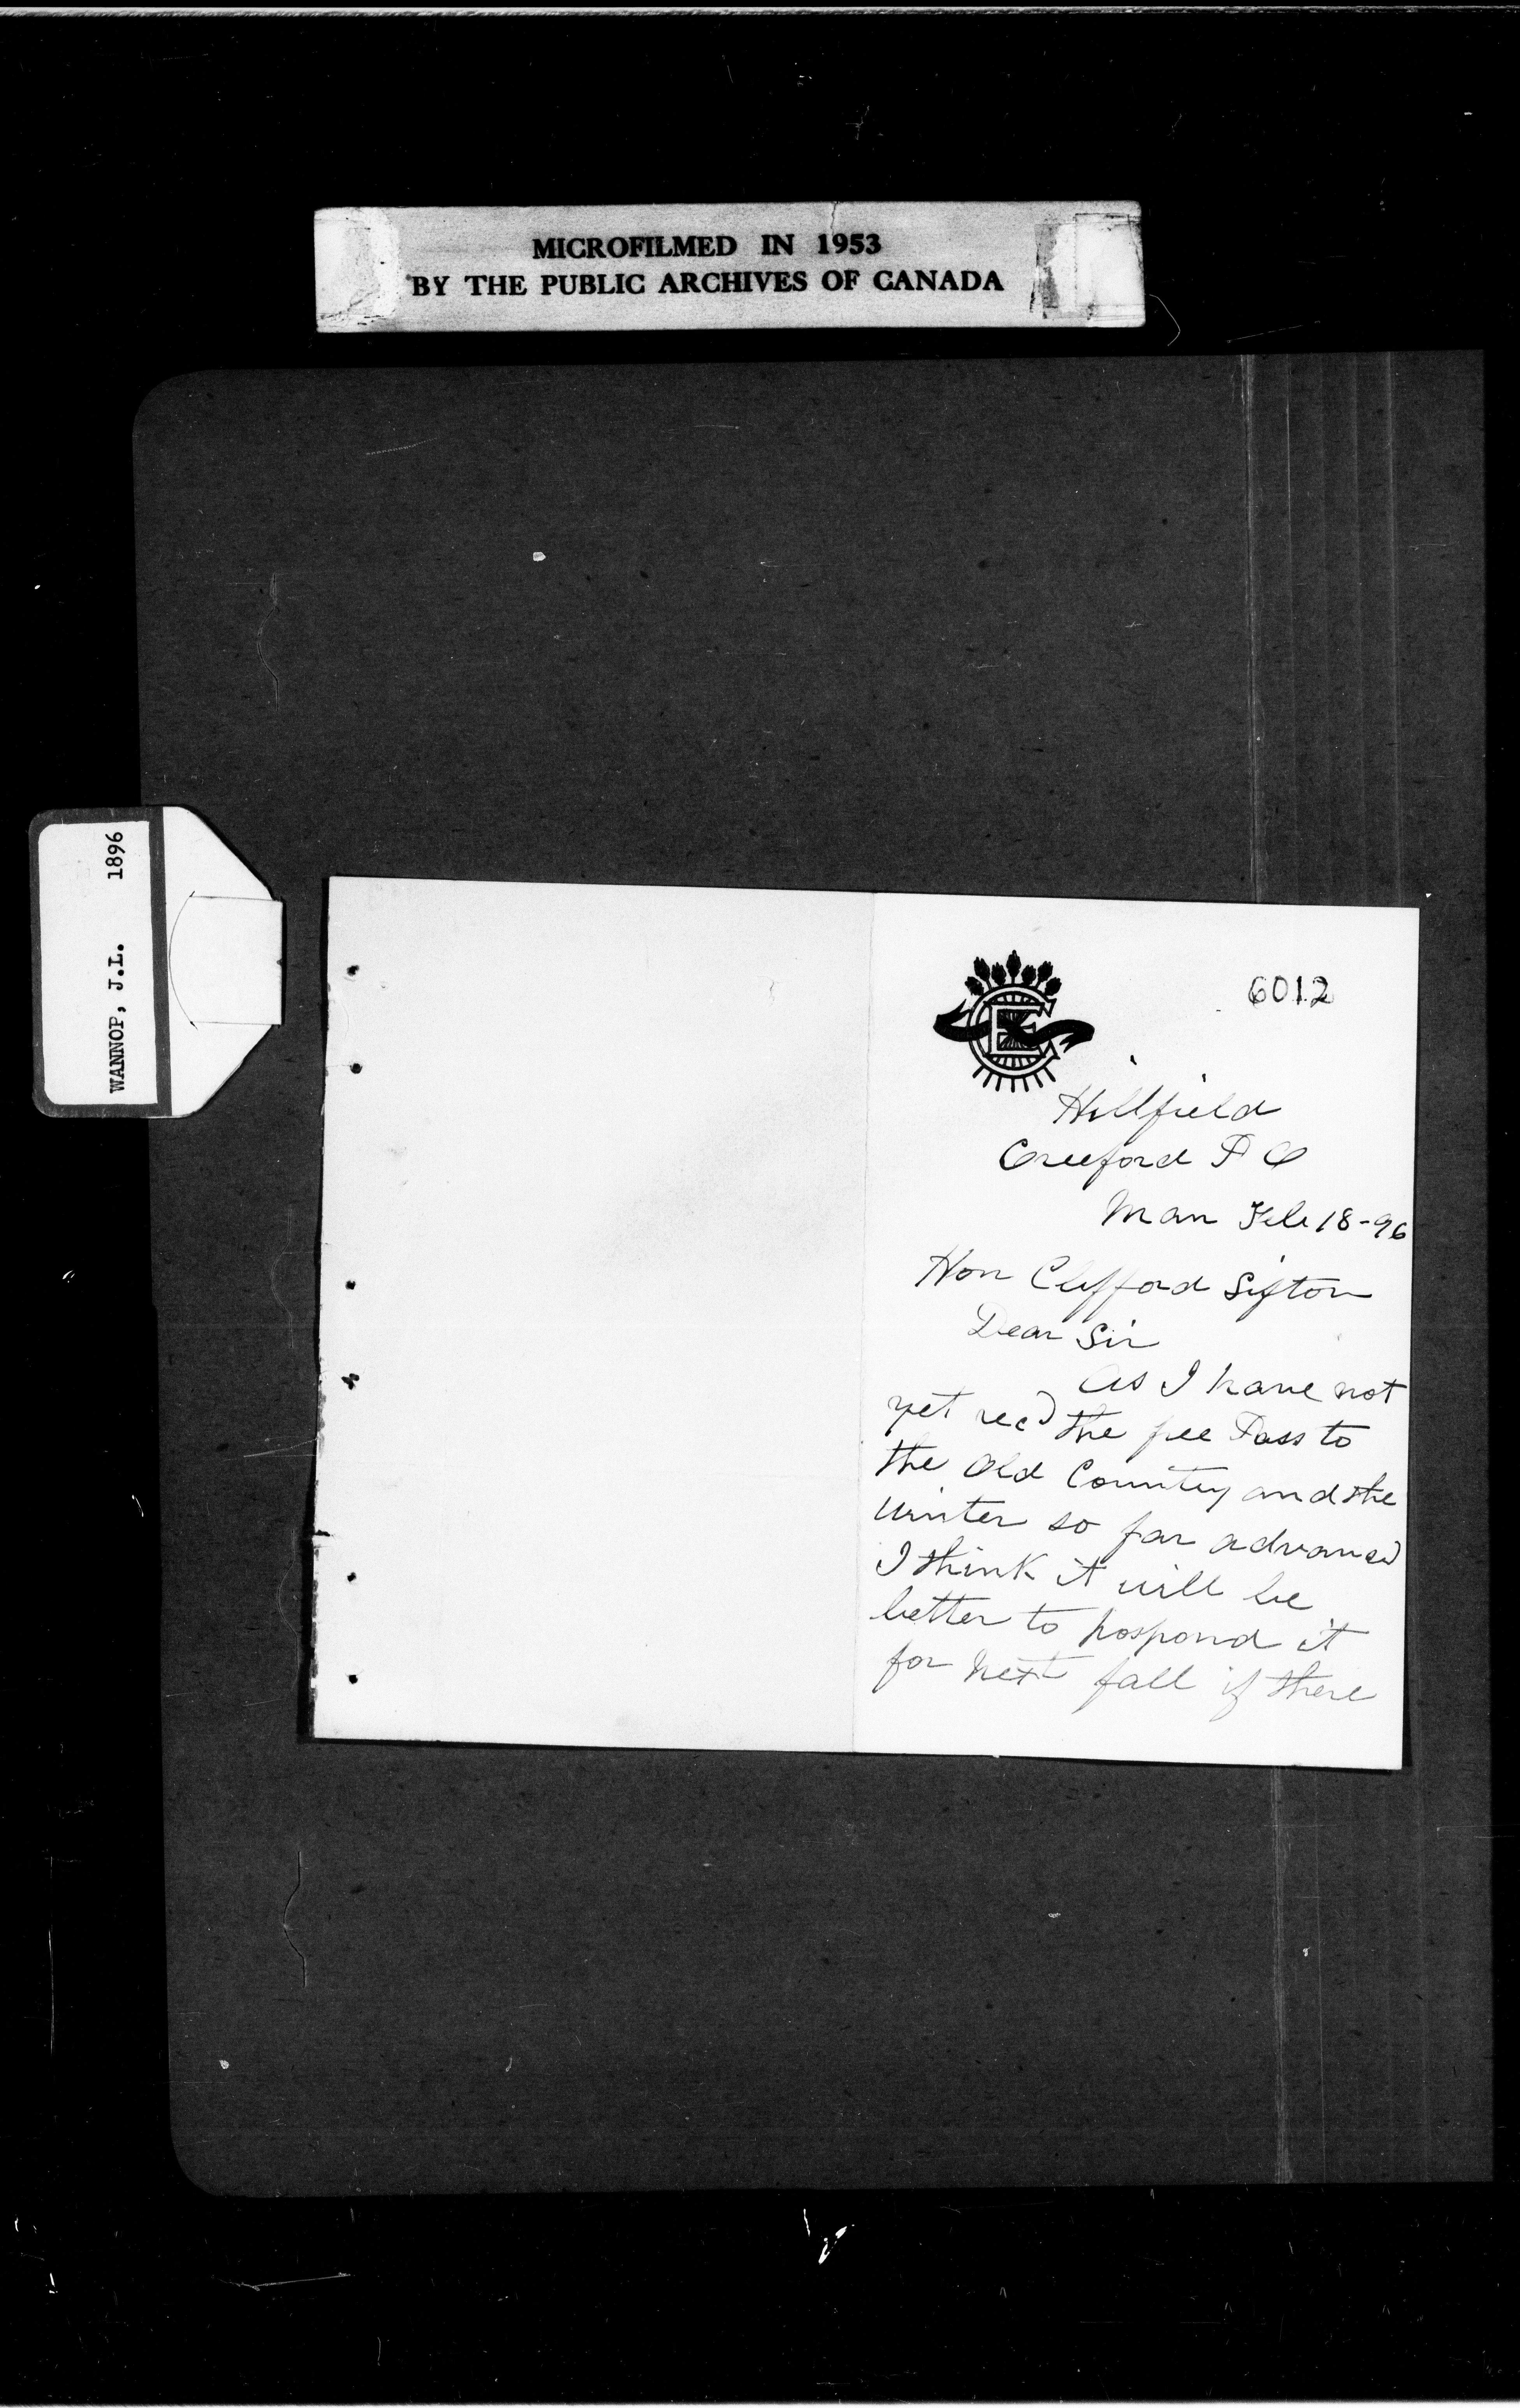 MICROFILMED IN 1953
BY THE PUBLIC ARCHIVES OF CANADA
WANNOP, J.L. 1896
CE
6012
Hillfield
Creeford P O
Man Feb 18-96
Hon Clifford Sifton
Dear Sir
As I have not
yet recd the free Pass to
the Old Country and the
winter so far advanced
I think it will be
better to pospond it
for next fall if there